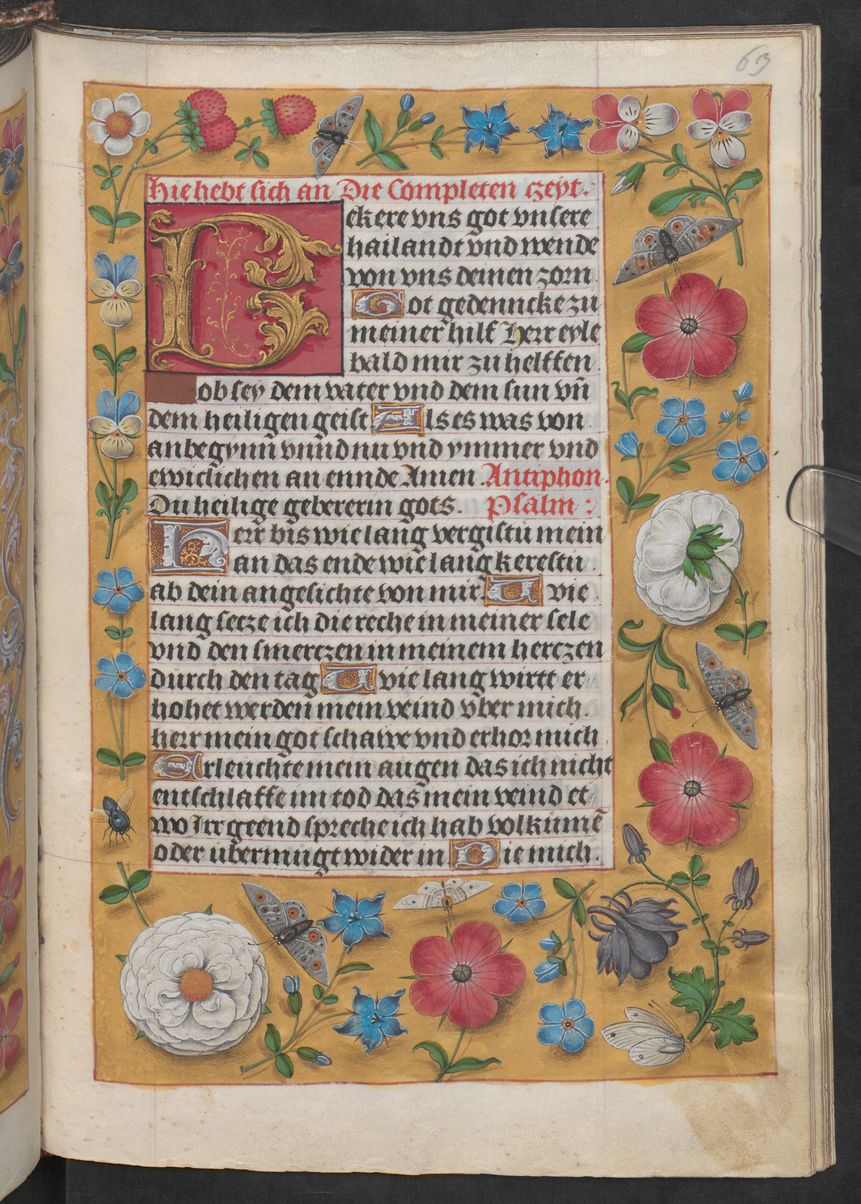 63
Hie hebt sich an Die Completen czeyt.
Bekere vns got vnsere
hailandt vnd wende
von vns deinen zorn
Got gedenncke zu
meiner hilf Herr eyle
bald mir zu helffen
ob sey dem vater vnd dem sun vn̄
dem heiligen geist Als es was von
anbegynn vnnd nu vnd ymmer vnd
ewiclichen an ennde Amen. Antiphon.
Du heilige gebererin gots. Psalm:
Herr bis wie lang vergistu mein
an das ende wie lang kerestu
ab dein angesichte von mir. Wie
lang secze ich die reche in meiner sele
vnd den smerczen in meinem herczen
durch den tag Wie lang wirtt er
hohet werden mein veind vber mich.
herr mein got schawe vnd erhor mich
Erleuchte mein augen das ich nicht
entschlaffe im tod das mein veind et
wo Irrgeend spreche ich hab volkumē
oder übermugt wider in Die mich.